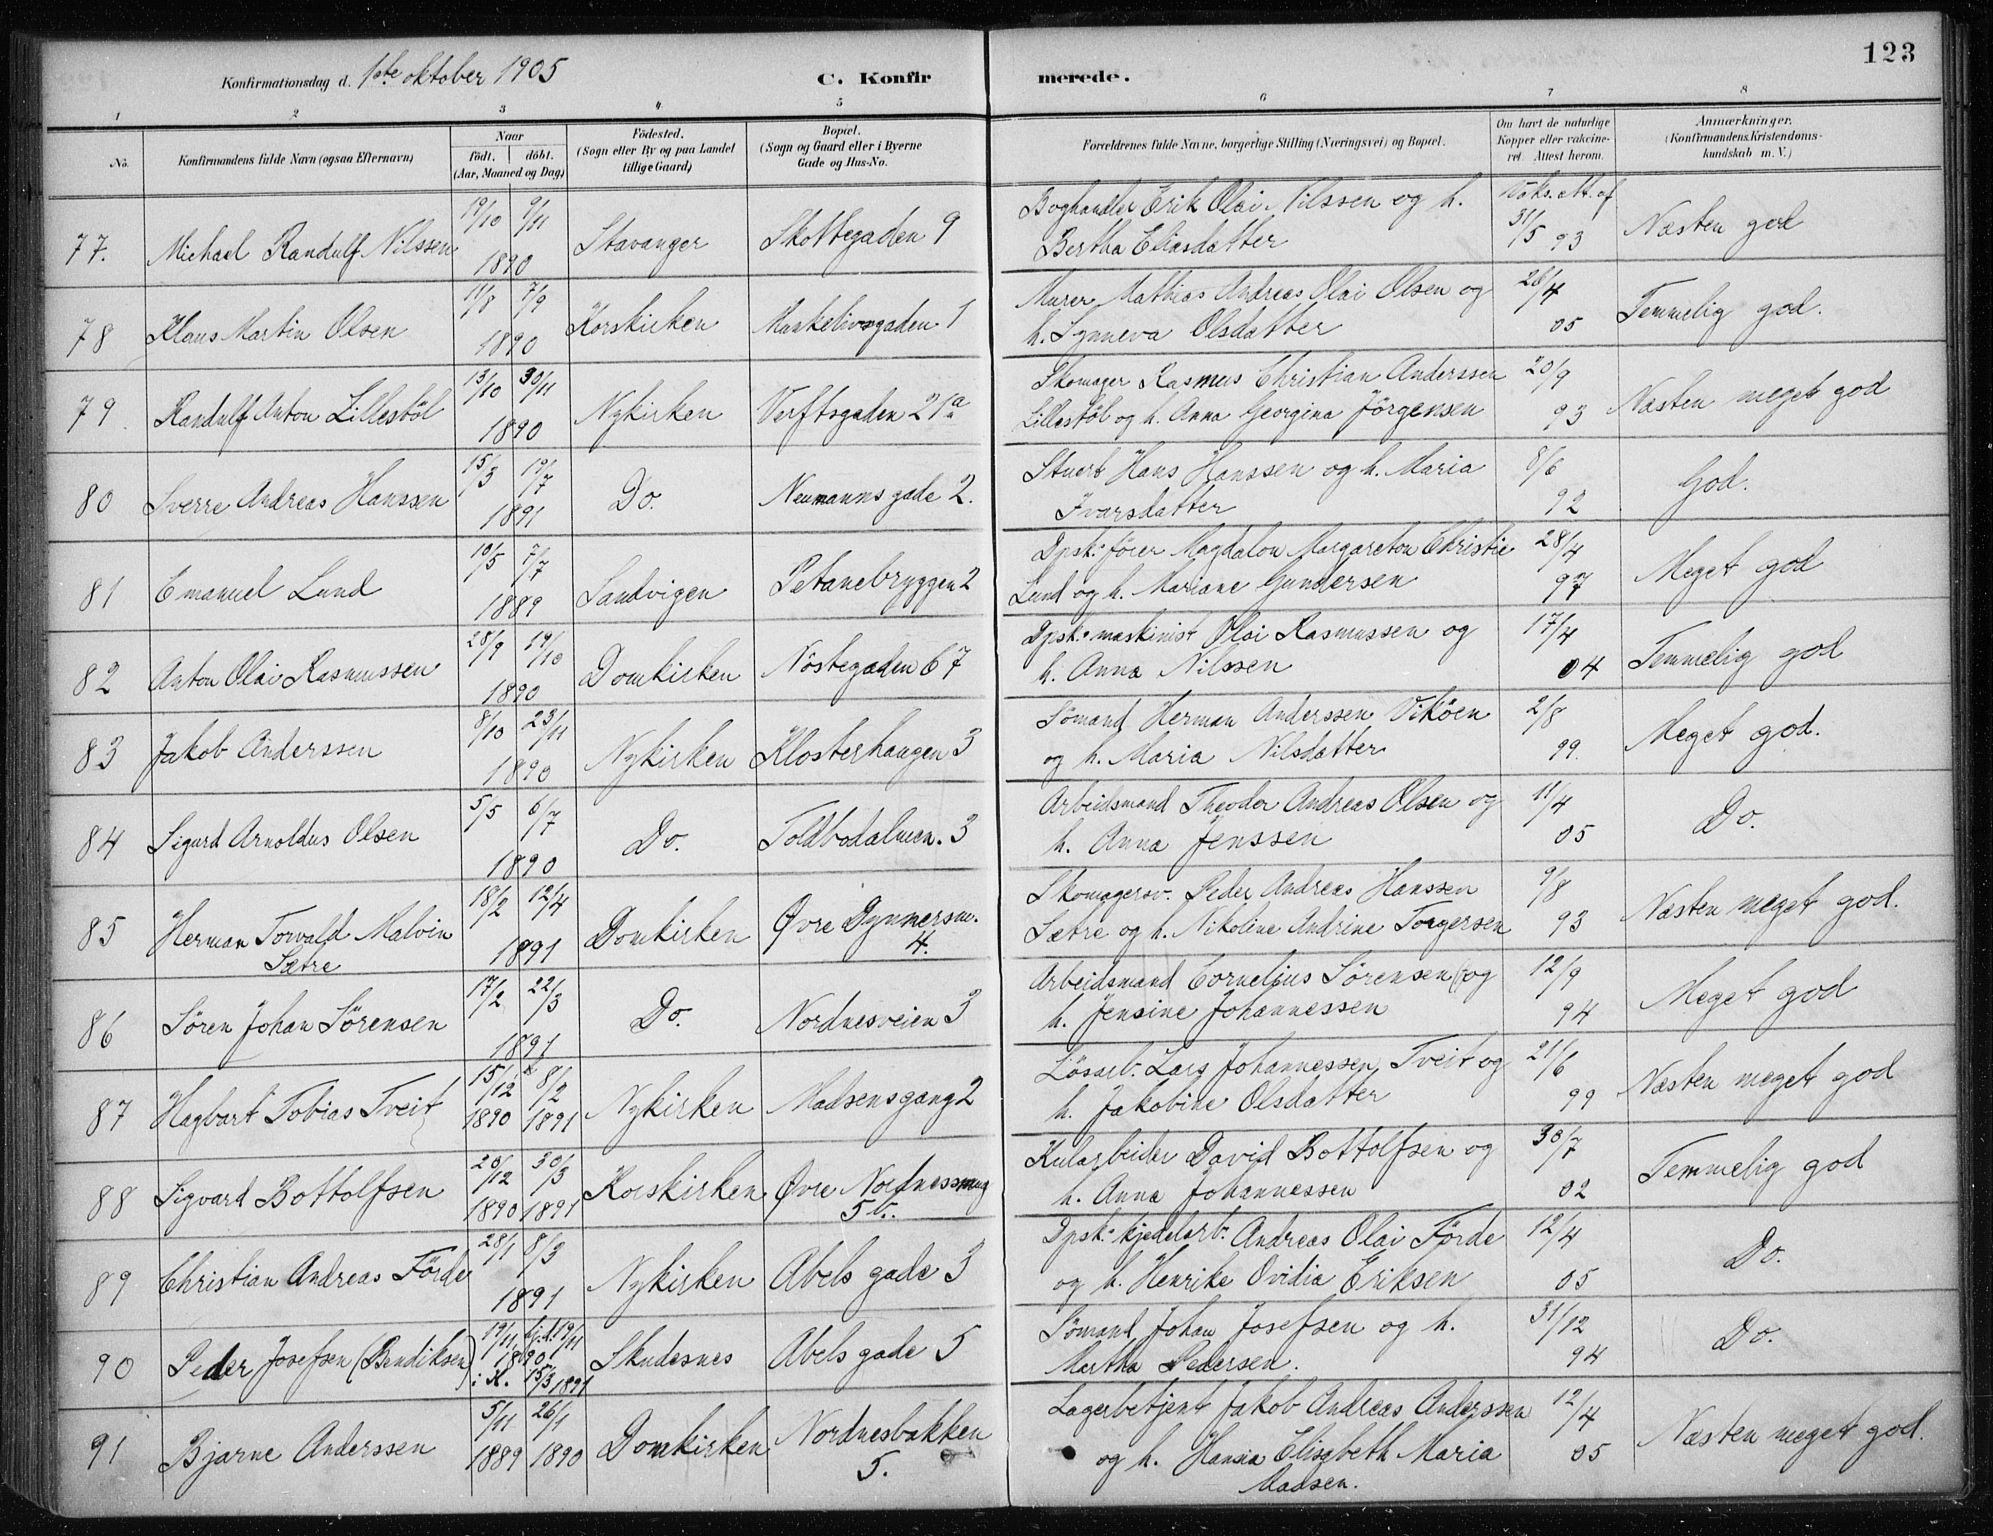 123
Konfirmationsdag d. 1ste oktober 1905 C. Konfirmerede.
1 2 3 4 5 6 7 8
No. Konfirmandens fulde Navn (ogsaa Efternavn) Naar født. døbt. (Aar, Maaned og Dag) Fødested. (Sogn eller By og paa Landet tillige Gaard) Bopæl. (Sogn og Gaard eller i Byerne Gade og Hus-No. Forældrenes fulde Navne, borgerlige Stilling (Næringsvei) og Bopæl. Om havt de naturlige Kopper eller vakcineret. Attest herom. Anmærkninger. (Konfirmandens Kristendomskundskab m. V.)
77. Michael Randulf Nilssen 19/10 9/11 1890 Stavanger Skottegaden 9 Boghandler Erik Olai Nilssen og h. Bertha Eliasdatter Vaks. att. af 31/5 93 Næsten god
78 Klaus Martin Olsen 11/8 7/9 1890 Korskirken Munkelivsgaden 1 Murer Mathias Andreas Olai Olsen og h. Synneva Olsdatter 28/4 05 Temmelig god.
79 Randulf Anton Lillestöl 13/10 30/11 1890 Nykirken Verftsgaden 21a Skomager Rasmus Christian Anderssen Lillestöl og h. Anna Georgina Jörgensen 20/9 93 Næsten meget god
80 Sverre Andreas Hanssen 15/3 19/7 1891 Do. Neumanns gade 2. Stuert Hans Hanssen og h. Maria Ivarsdatter 8/6 92 God.
81 Emanuel Lund 10/5 7/7 1889 Sandvigen Petanebryggen 2 Dpsk.-fører Magdalon Margareton Christie Lund og h. Mariane Gundersen 28/4 97 Meget god
82 Anton Olai Rasmussen 28/9 19/10 1890 Domkirken Nöstegaden 67 Dpsk.-maskinist Olai Rasmussen og h. Anna Nilssen 17/4 04 Temmelig god
83 Jakob Anderssen 8/10 23/11 1890 Nykirken Klosterhaugen 3 Sömand Herman Anderssen Viköen og h. Maria Nilsdatter 2/8 99. Meget god.
84 Sigurd Arnoldus Olsen 5/5 6/7 1890 Do. Toldbodalmen. 3 Arbeidsmand Theodor Andreas Olsen og h. Anna Jenssen 11/4 05 Do.
85 Herman Torvald Malvin Sætre 18/2 12/4 1891 Domkirken Øvre Dynnersm. 4. Skomagersv. Peder Andreas Hanssen Sætre og h. Nikoline Andrine Torgersen 9/8 93 Næsten meget god.
86 Sören Johan Sörensen 17/2 22/3 1891 Do. Nordnesveien 3 Arbeidsmand Cornelius Sörensen og h. Jensine Johannessen 12/9 94 Meget god
87 Hagbart Tobias Tveit 15/12 1890 8/2 1891 Nykirken Madsensgang 2 Lösarb. Lars Johannessen Tveit og h. Jakobine Olsdatter 21/6 99 Næsten meget god
88 Sigvard Bottolfsen 20/12 1890 30/3 1891 Korskirken Øvre Nordnessmug 5b. Kularbeider David Bottolfsen og h. Anna Johannessen 30/7 02 Temmelig god
89 Christian Andreas Förde 28/1 8/3 1891 Nykirken Abels gade 3 Dpsk.-kjedelarb. Andreas Olai Förde og h. Henrike Ovidia Eriksen 12/4 05 Do.
90 Peder Josefsen (Bendiksen) 19/11 hj.d. 19/11 1890. i K. 15/3 1891 Skudesnes Abels gade 5 Sömand Johan Josefsen og h. Martha Pedersen. 31/12 94 Do.
91 Bjarne Anderssen 5/11 1889 26/1 1890 Domkirken Nordnesbakken 5. Lagerbetjent Jakob Andreas Anderssen og h. Hansia Elisabeth Maria Madsen. 12/4 05 Næsten meget god.